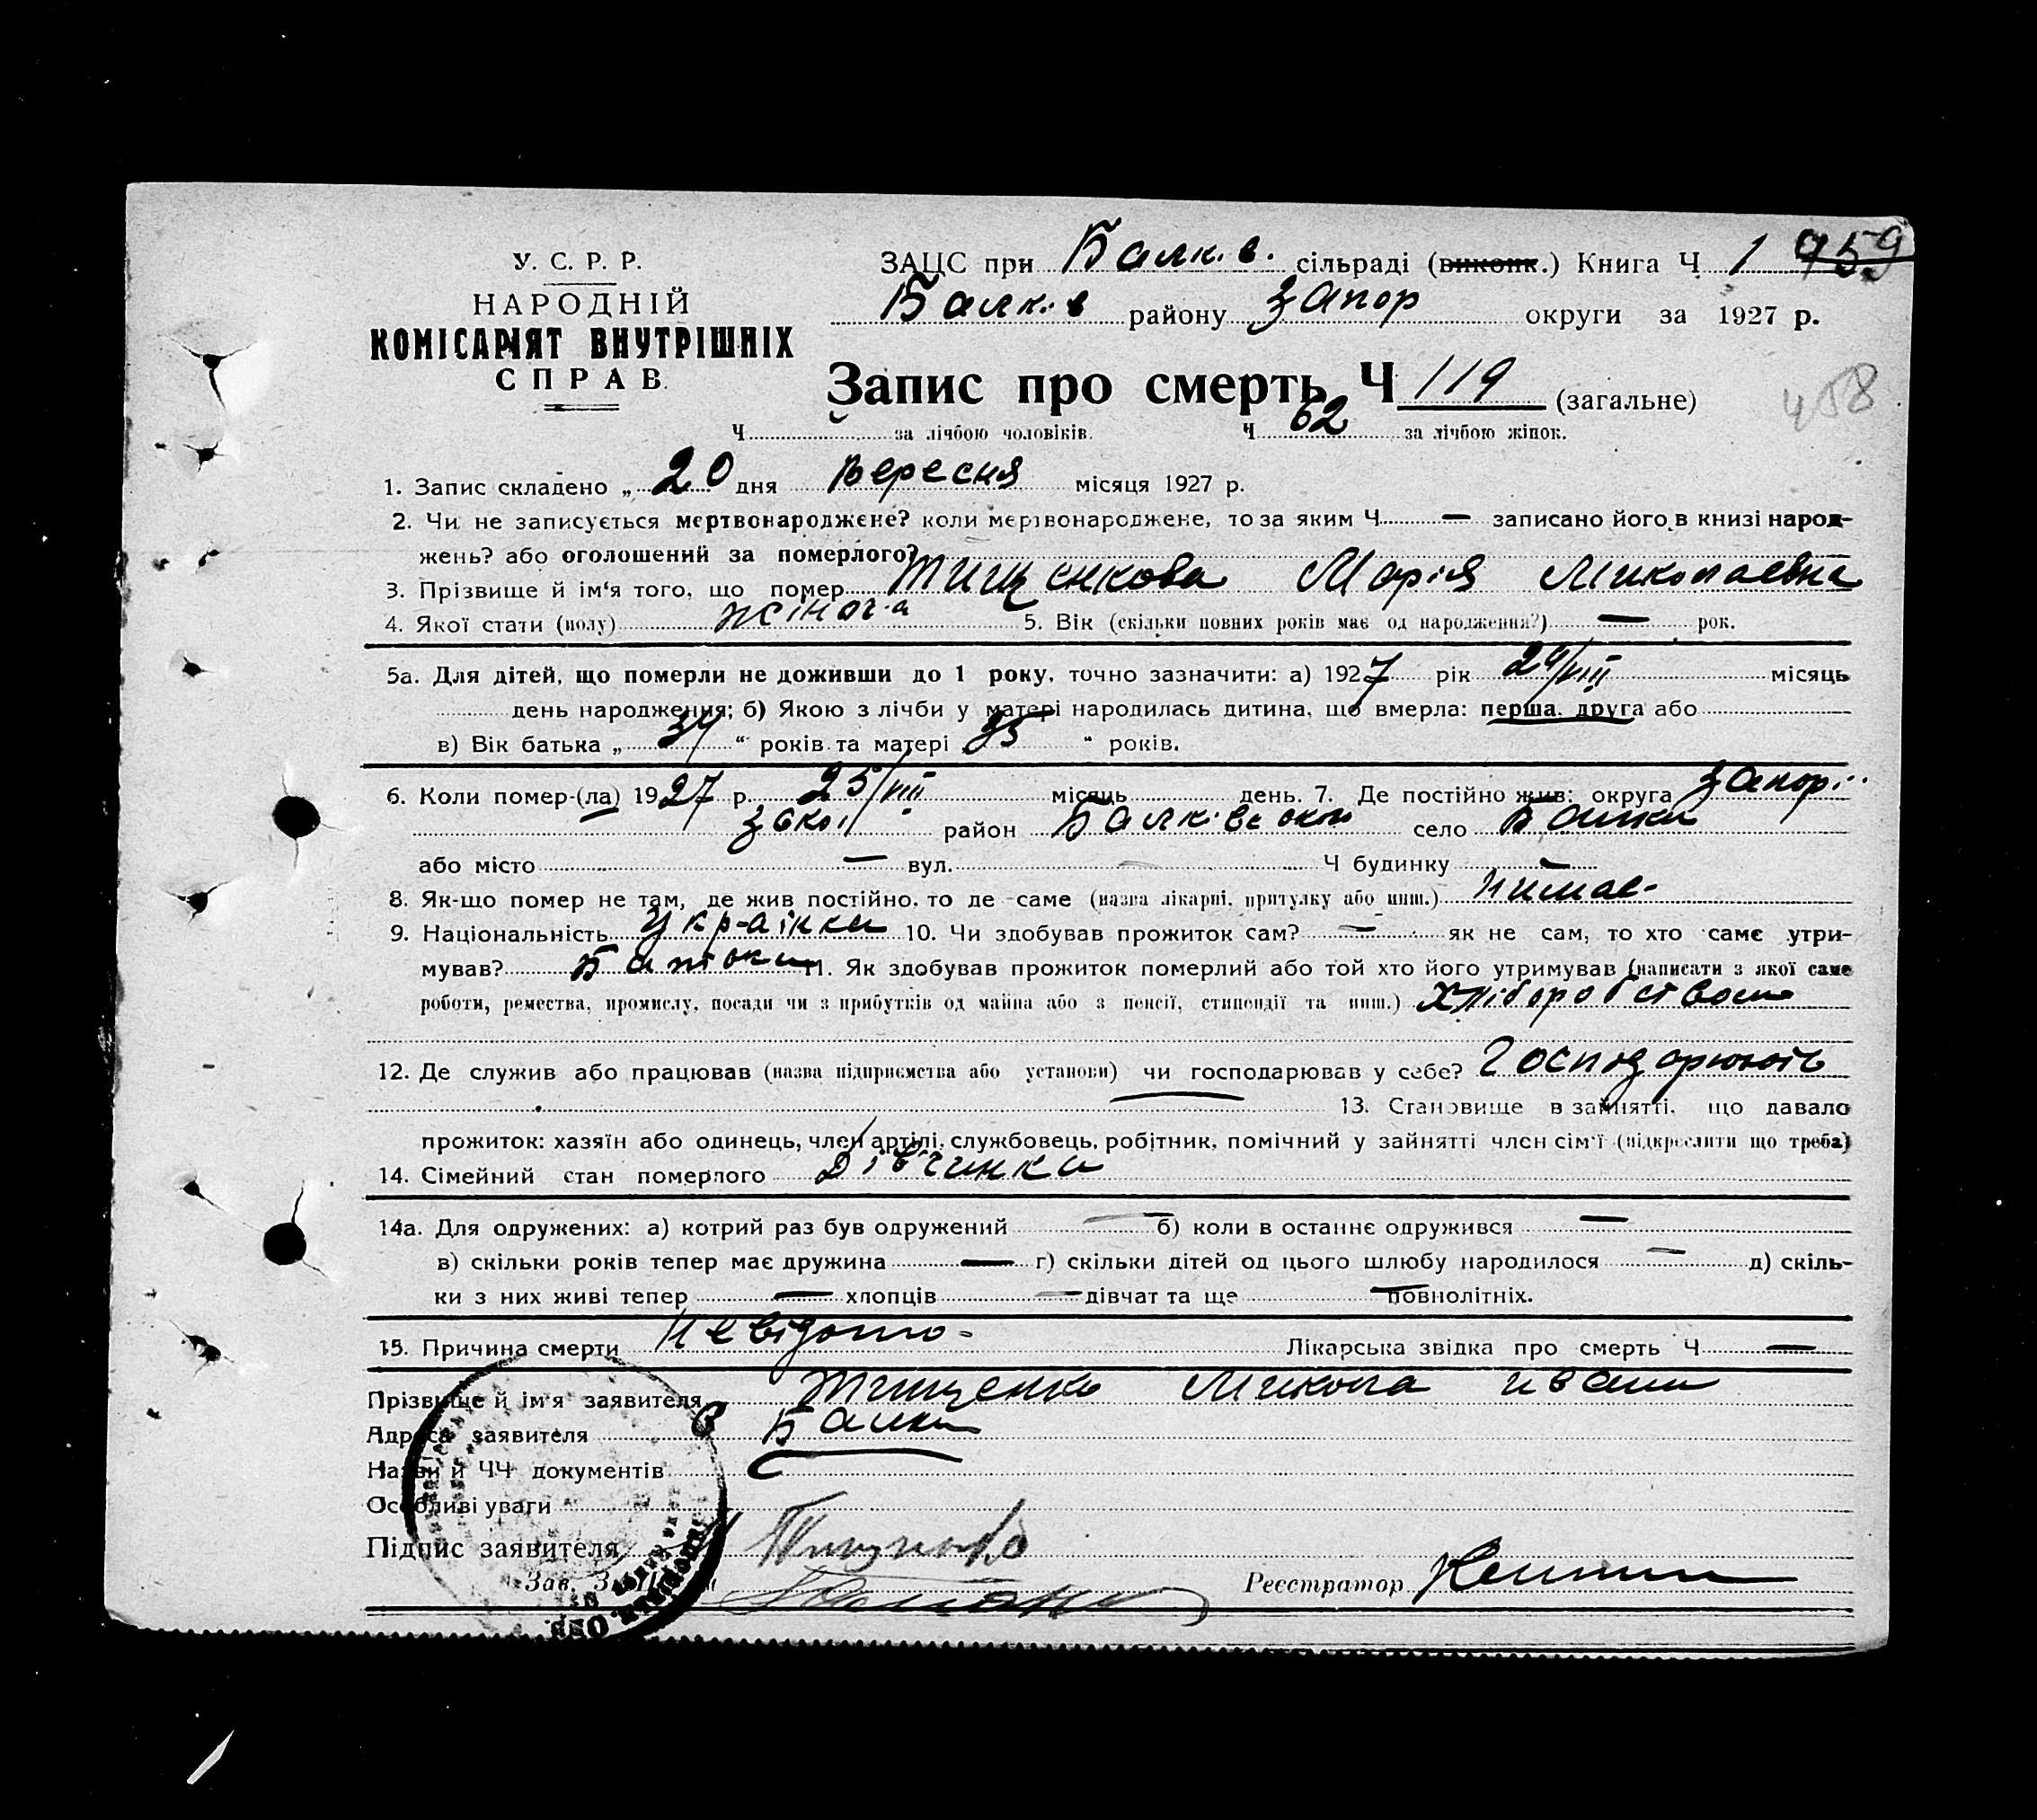 У. С. Р. Р.
НАРОДНІЙ
КОМІСАРІЯТ ВНУТРІШНІХ
СПРАВ.
ЗАЦС при Балк.в. сільраді (виконк.) Книга Ч 1 959
Балк.в району Запор округи за 1927 р.
Запис про смерть Ч 119 (загальне)
458
Ч за лічбою чоловіків. Ч 62 за лічбою жінок.
1. Запис складено „ 20 дня Вересня місяця 1927 р.
2. Чи не записується мертвонароджене? коли мертвонароджене, то за яким Ч — записано його в книзі народ-
жень? або оголошений за померлого?
3. Прізвище й ім'я того, що помер Тищенкова Марія Миколаевна
4. Якої стати (полу) жіноч-а 5. Вік (скільки повних років має од народження?) — рок.
5а. Для дітей, що померли не доживши до 1 року, точно зазначити: а) 1927 рік 24/VIII місяць
день народження; б) Якою з лічби у матері народилась дитина, що вмерла: перша, друга або
в) Вік батька „ 34 “ років та матері 35 “ років.
6. Коли помер-(ла) 1927 р. 25/VIII місяць день. 7. Де постійно жив: округа Запорі-
район село Балки
або місто — вул. — Ч будинку —
8. Як-що помер не там, де жив постійно, то де саме (назва лікарні, притулку або инш.)
9. Національність Укр-аінка 10. Чи здобував прожиток сам? — як не сам, то хто саме утри-
мував? Батьки 11. Як здобував прожиток померлий або той хто його утримував (написати з якої саме
роботи, ремества, промислу, посади чи з прибутків од майна або з пенсії, стипендії та инш.) Хліборобством
12. Де служив або працював (назва підприємства або установи) чи господарював у себе? Господарюють
13. Становище в занятті, що давало
прожиток: хазяїн або одинець, член артілі, службовець, робітник, помічний у зайнятті член сім'ї (підкреслити що треба)
14. Сімейний стан померлого Дівчинка
14а. Для одружених: а) котрий раз був одружений — б) коли в останнє одружився —
в) скільки років тепер має дружина — г) скільки дітей од цього шлюбу народилося — д) скіль-
ки з них живі тепер — хлопців — дівчат та ще — повнолітніх.
15. Причина смерти Невідомо - Лікарська звідка про смерть Ч —
Прізвище й ім'я заявителя Тищенко Микола Иван
Адреса заявителя с Балки
Назви й ЧЧ документів
Особливі уваги
Підпис заявителя
Зав. Реєстратор